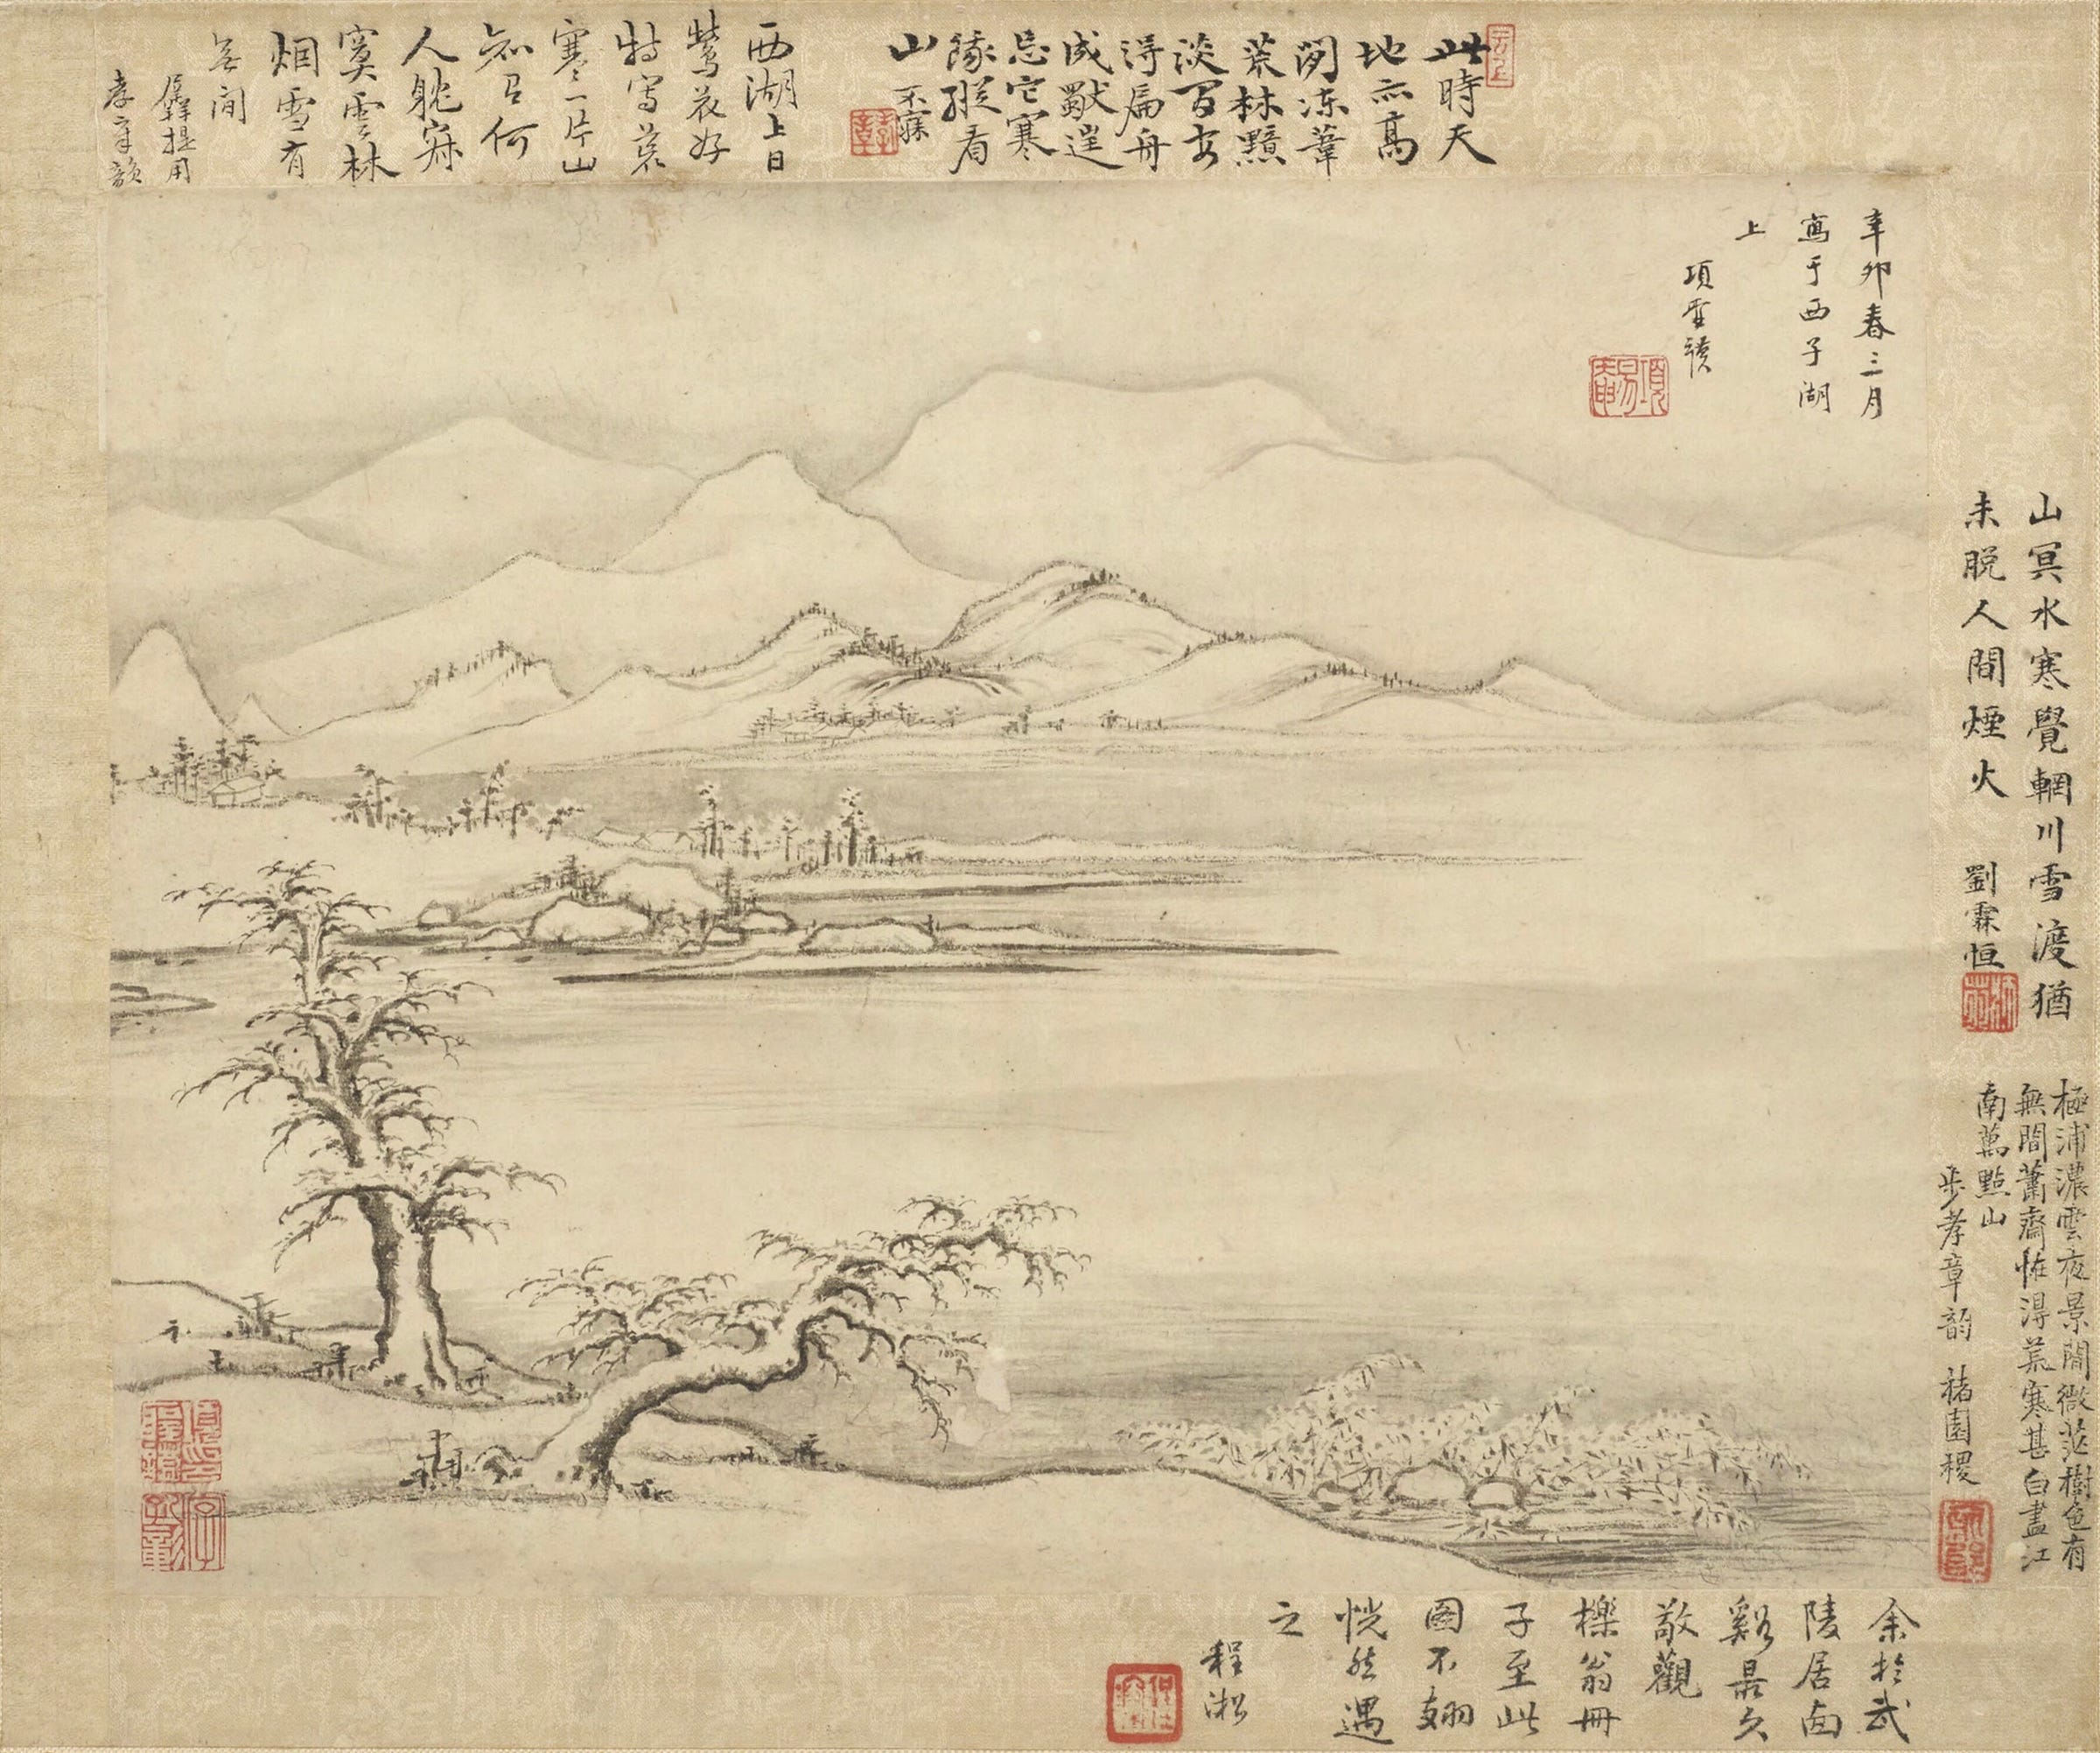 辛卯春三月
寫于西子湖
上
項
此時天
地亦高
閴凍葦
荒林黯
淡間安
得扁舟
成獸遑
忘它寒
隊縱看
山 不寐
西湖上日
鶯花好
特寫荒
寒一片山
知己何
人躭寂
寞雲林
烟雪有
無間
犀提用
孝章韻
山冥水寒覺輞川雪渡猶
未脫人間煙火 劉霖恒
極浦濃雲夜景閒微茫樹色有
無間蕭齋恠得荒寒甚白盡江
南萬點山
步孝章韵 褚園稷
余於武
陵居面
谿最久
敬觀
櫟翁冊
子至此
圖不翅
恍然遇
之
程淞